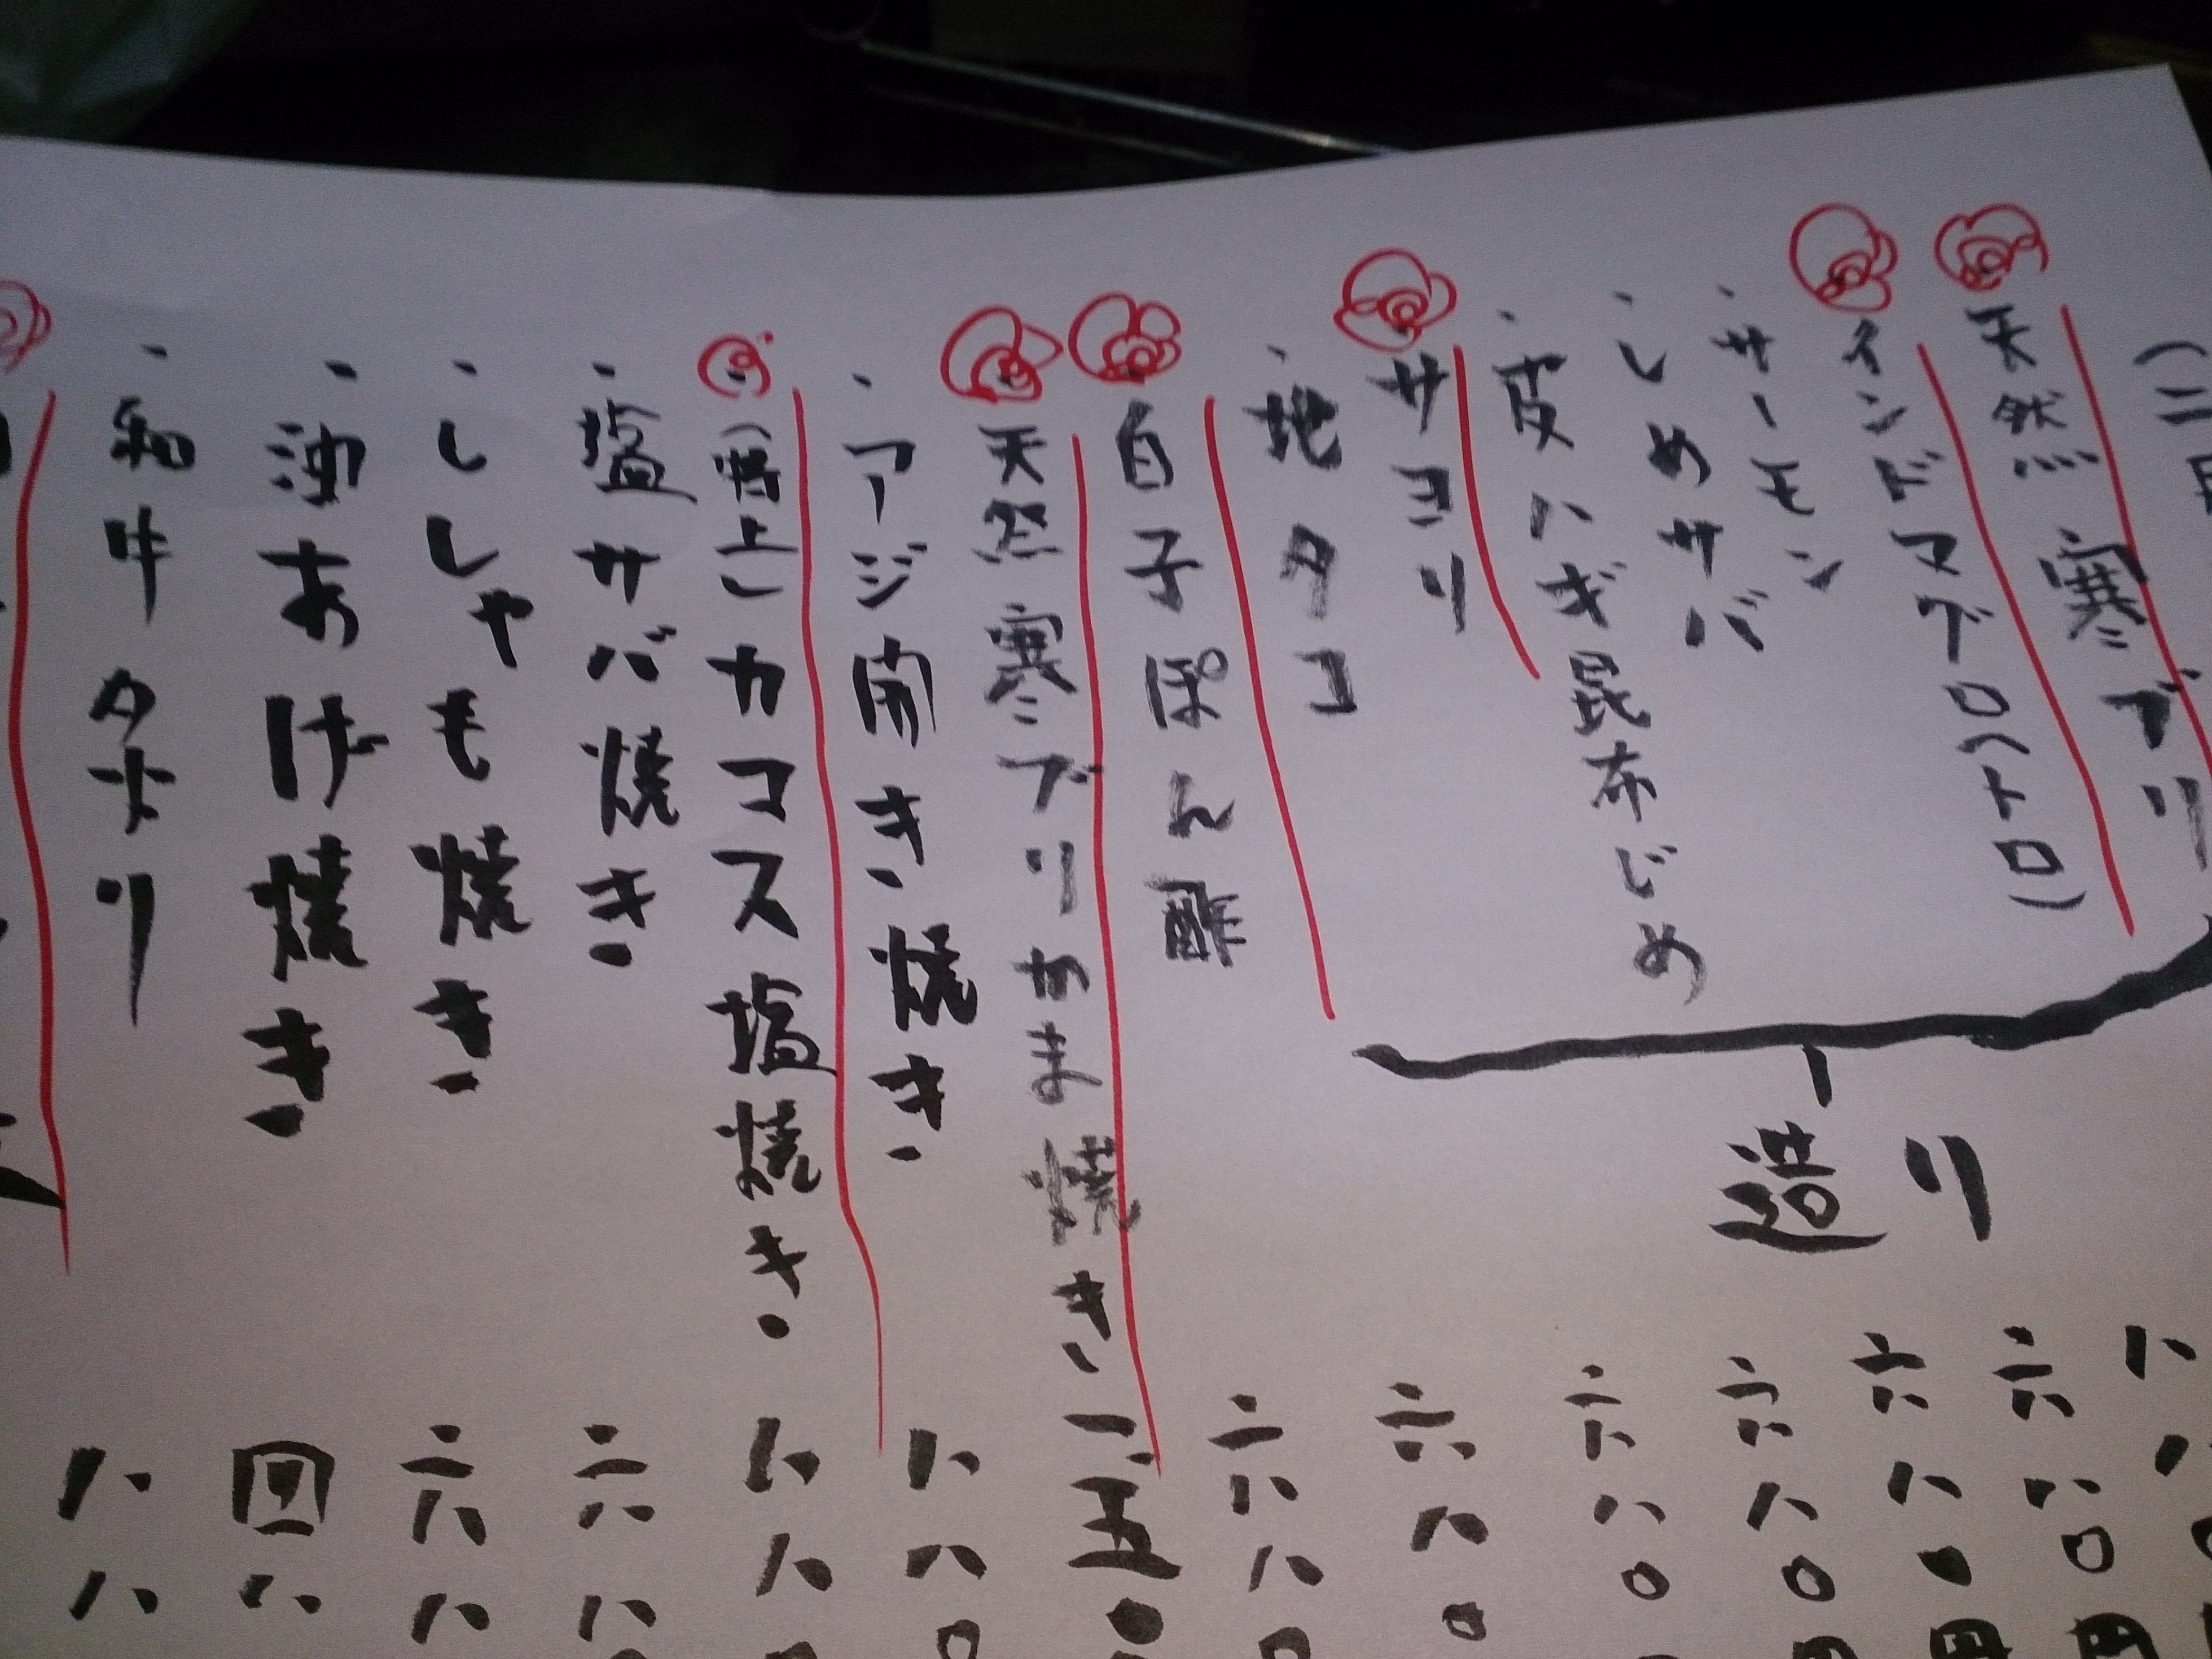 天然 寒ブリ
インドマグロ(トロ)
サーモン
しめサバ
皮ハギ昆布じめ
サヨリ
地タコ
造り
白子ぽん酢 六八
天然寒ブリかま焼き 一五〇
アジ開き焼き 八八〇
(特上)カマス塩焼き 八八
塩サバ焼き 六八
ししゃも焼き 六八
油あげ焼き 四八
和牛タタキ 八八
六八〇円
六八〇円
六八〇
六八〇
六八〇